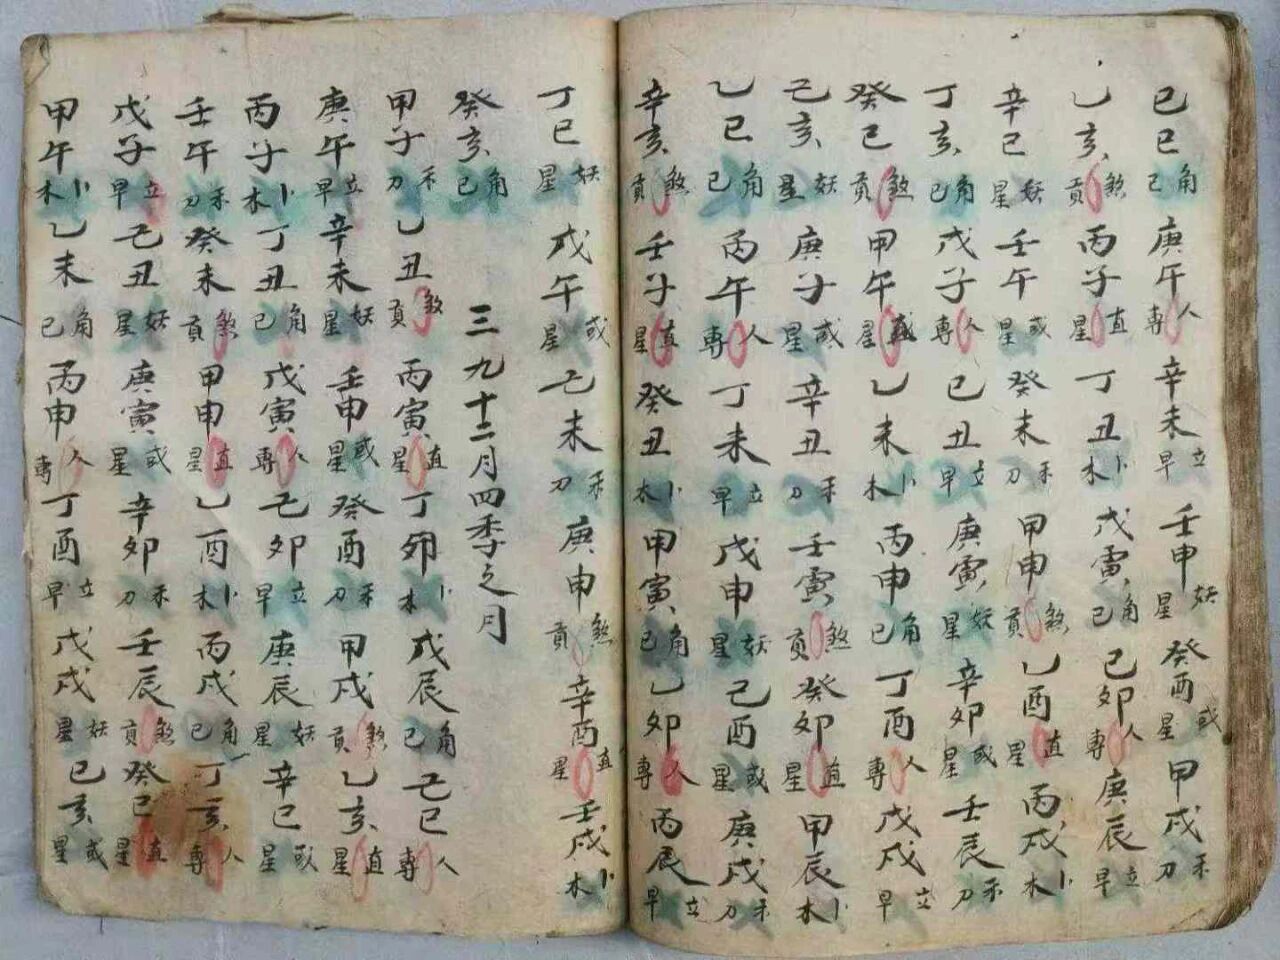 己巳角己庚午人專辛未立早壬申妖星癸酉或星甲戌禾刀
乙亥煞貢丙子直星丁丑卜木戊寅角己己卯人專庚辰立早
辛巳妖星壬午或星癸未禾刀甲申煞貢乙酉直星丙戌卜木
丁亥角己戊子人專己丑立早庚寅妖星辛卯或星壬辰禾刀
癸巳煞貢甲午直星乙未卜木丙申角己丁酉人專戊戌立早
己亥妖星庚子或星辛丑禾刀壬寅煞貢癸卯直星甲辰卜木
乙巳角己丙午人專丁未立早戊申妖星己酉或星庚戌禾刀
辛亥煞貢壬子直星癸丑卜木甲寅角己乙卯人專丙辰立早
丁巳妖星戊午或星己未禾刀庚申煞貢辛酉直星壬戌卜木
癸亥角己
三九十二月四季之月
甲子禾刀乙丑煞貢丙寅直星丁卯卜木戊辰角己己巳人專
庚午立早辛未妖星壬申或星癸酉禾刀甲戌煞貢乙亥直星
丙子卜木丁丑角己戊寅人專己卯立早庚辰妖星辛巳或星
壬午禾刀癸未煞貢甲申直星乙酉卜木丙戌角己丁亥人專
戊子立早己丑妖星庚寅或星辛卯禾刀壬辰煞貢癸巳直星
甲午卜木乙未角己丙申人專丁酉立早戊戌妖星己亥或星